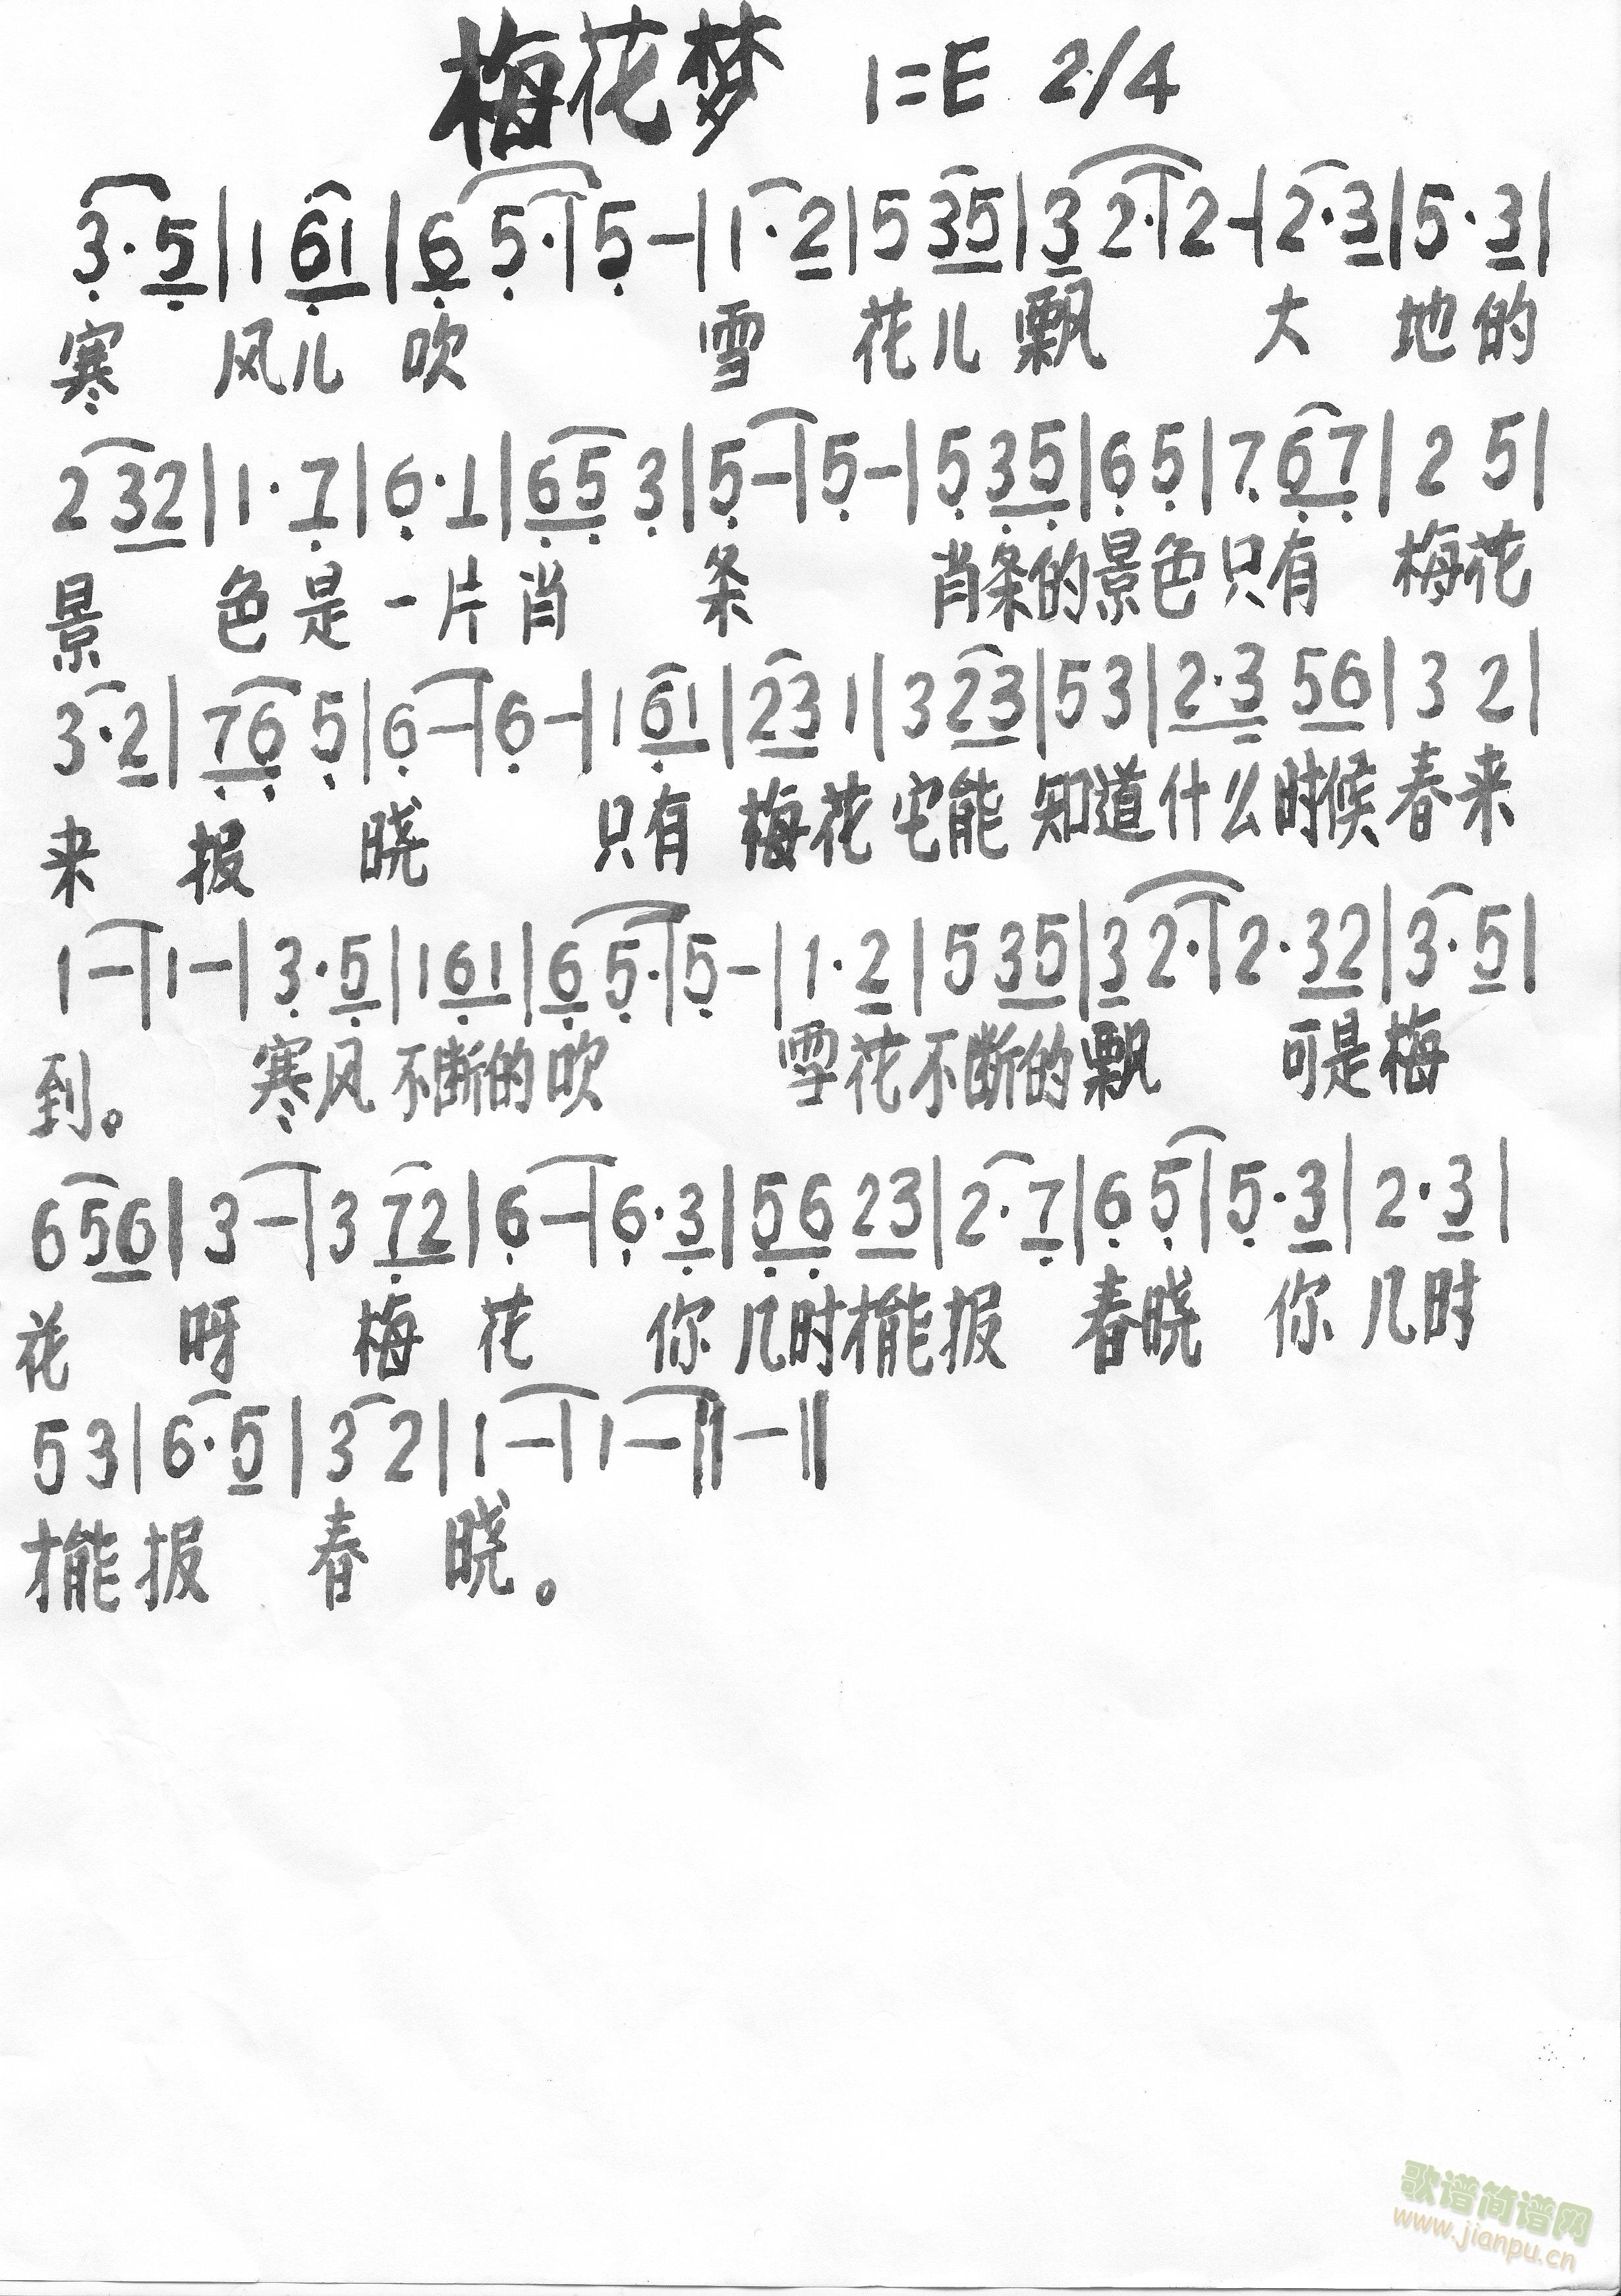 梅花梦 1=E 2/4
3·5|1 61|6 5·|5-|1·2|5 35|3 2·|2-|2·3|5·3|
寒 风儿 吹 雪 花儿飘 大 地的
2 32|1·7|6·1|65 3|5-|5-|5 35|6 5|7·67|2 5|
景 色是一片肖 条 肖条的景色只有 梅花
3·2|76 5|6-|6-|1 61|23 1|3 23|53|2·3 56|3 2|
来 报 晓 只有 梅花它能 知道什么时候春来
1-|1-|3·5|1 61|6 5·|5-|1·2|5 35|3 2·|2·32|3·5|
到。 寒风不断的吹 雪花不断的飘 可是梅
6 56|3-|3 72|6-|6·3|56 23|2·7|6 5|5·3|2·3|
花 呀 梅 花 你几时才能报 春晓 你几时
53|6·5|3 2|1-|1-‖-‖
才能报 春 晓。
歌谱简谱网
www.jianpu.cn